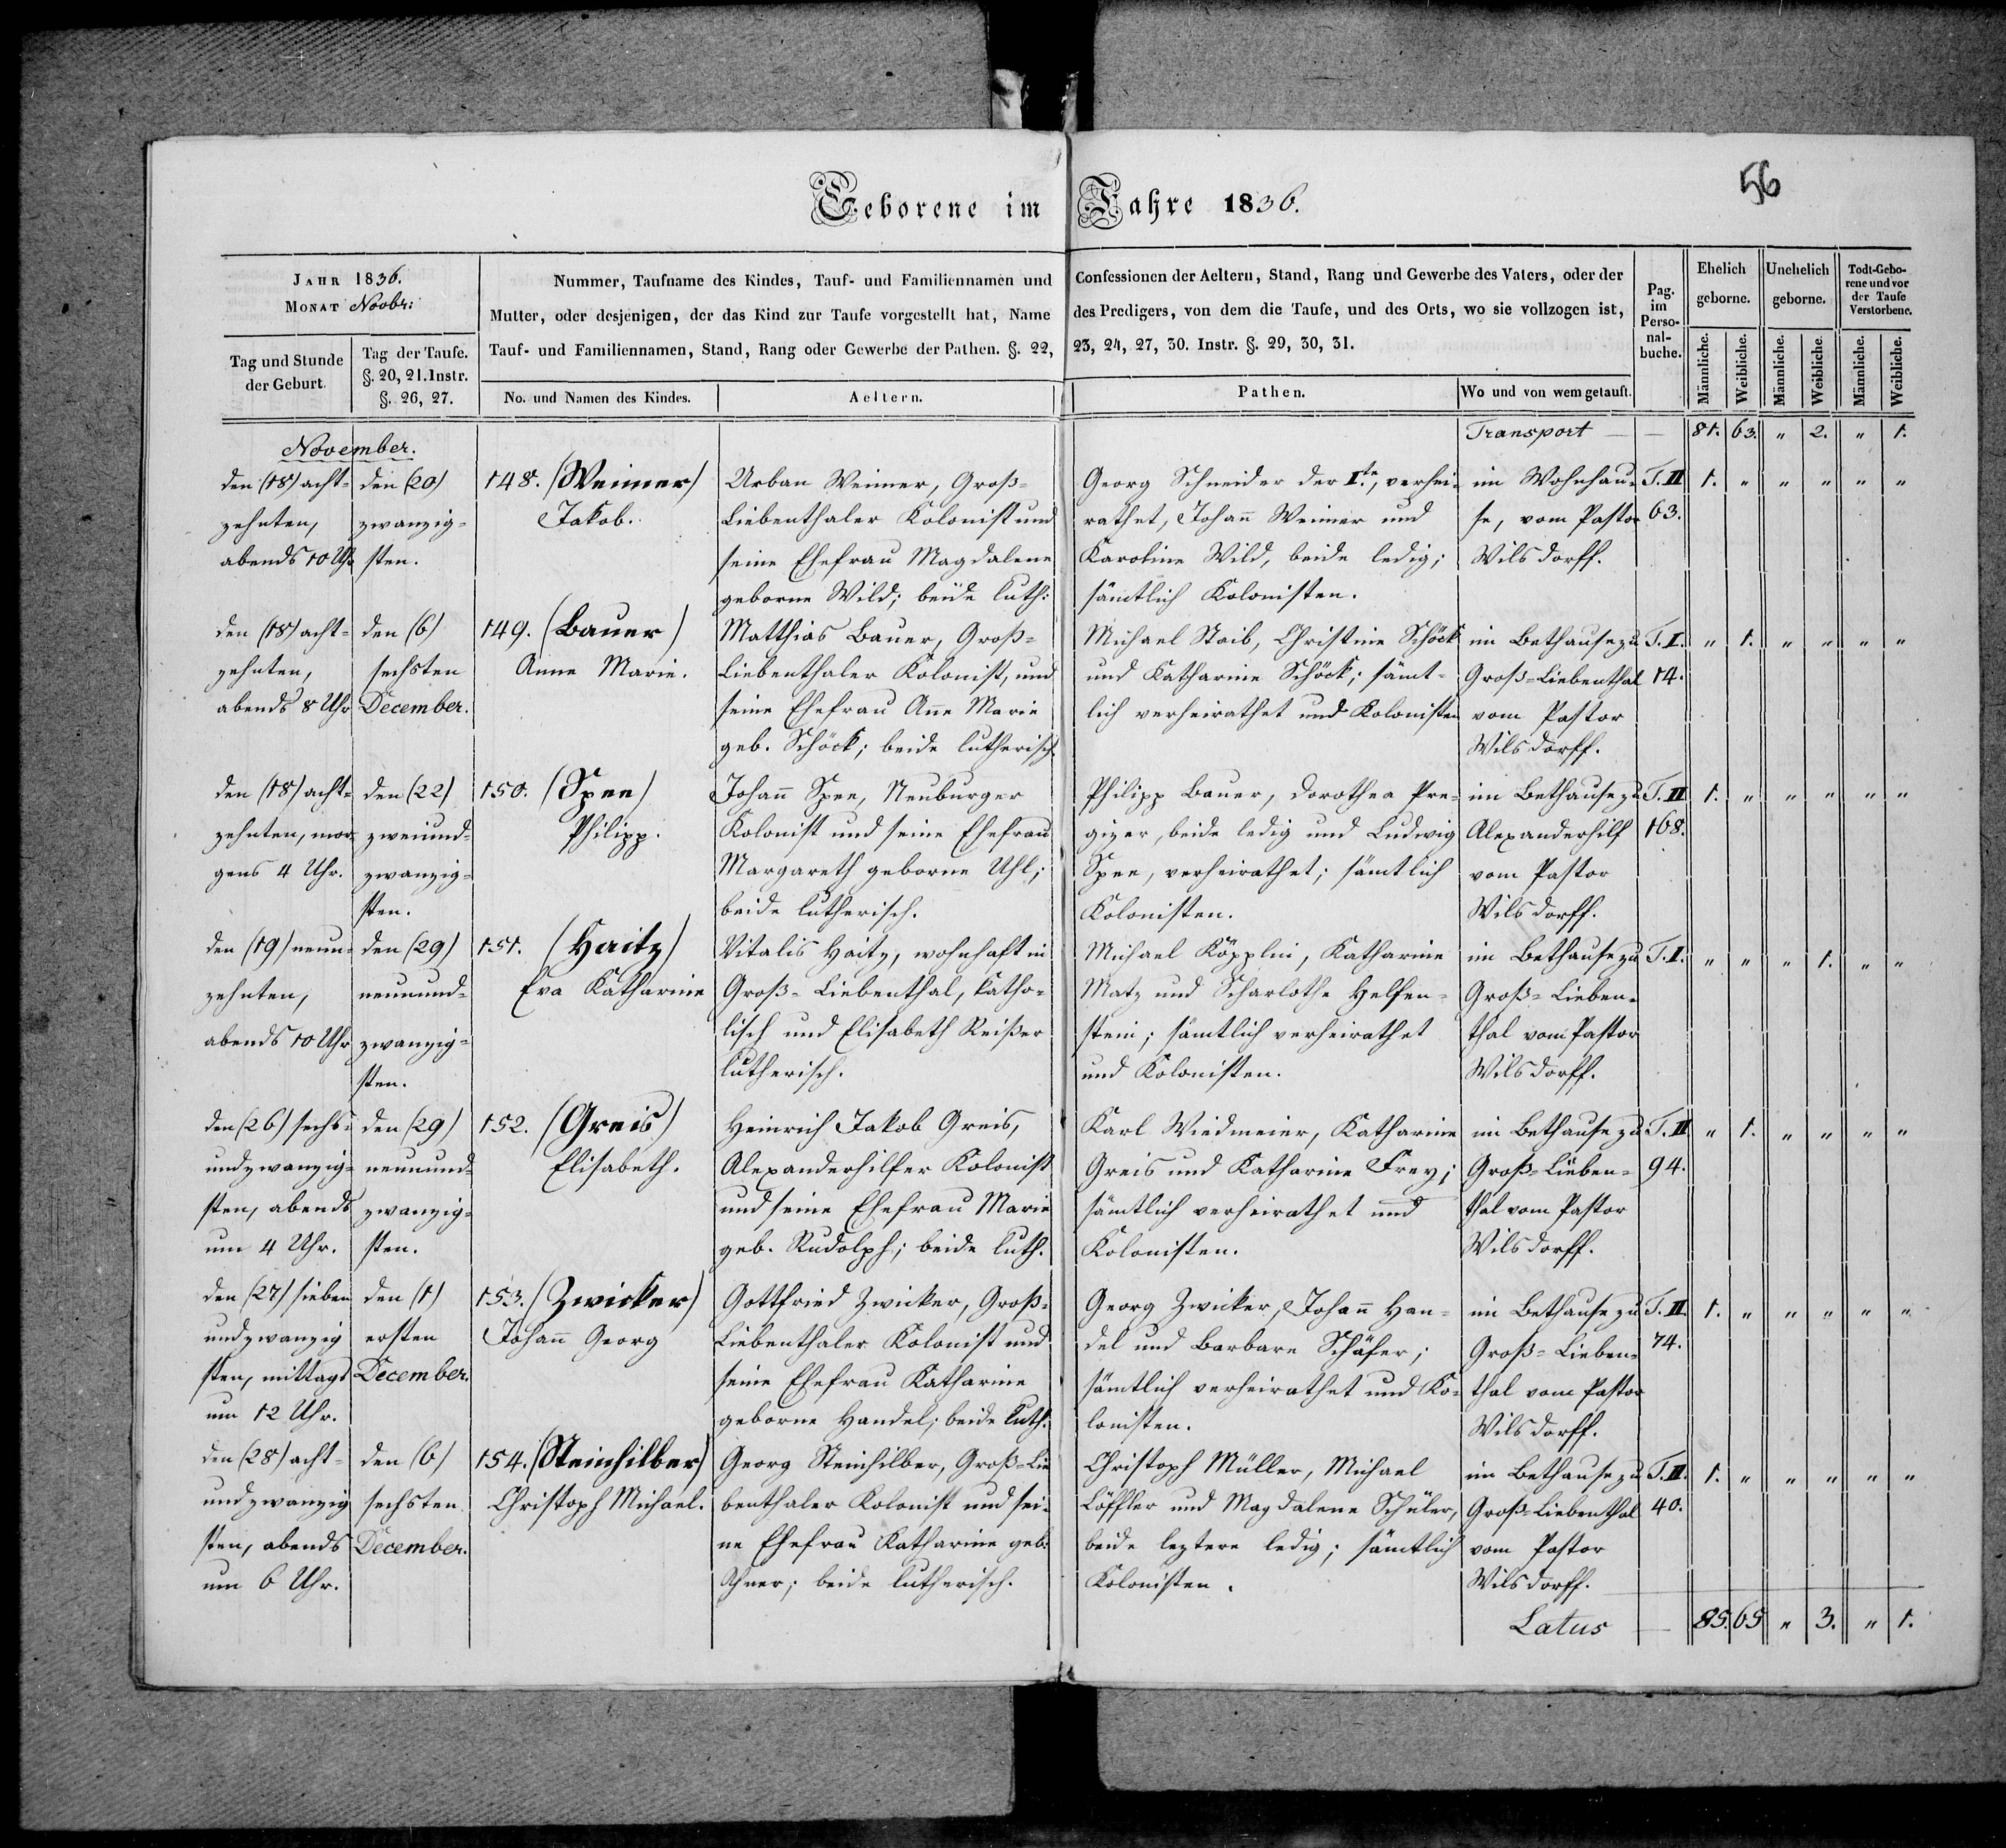 56
Geborene im Jahre 1836.
JAHR 1836.
MONAT Novbr:
Nummer, Taufname des Kindes, Tauf- und Familiennamen und
Mutter, oder desjenigen, der das Kind zur Taufe vorgestellt hat, Name
Tauf- und Familiennamen, Stand, Rang oder Gewerbe der Pathen. §. 22,
Confessionen der Aeltern, Stand, Rang und Gewerbe des Vaters, oder der
des Predigers, von dem die Taufe, und des Orts, wo sie vollzogen ist,
23, 24, 27, 30. Instr. §. 29, 30, 31.
Pag.
im
Perso-
nal-
buche.
Ehelich
geborne.
Unehelich
geborne.
Todt-Gebo-
rene und vor
der Taufe
Verstorbene.
Tag und Stunde
der Geburt.
Tag der Taufe.
§. 20, 21. Instr.
§. 26, 27.
No. und Namen des Kindes.
Aeltern.
Pathen.
Wo und von wem getauft.
Männliche.
Weibliche.
Männliche.
Weibliche.
Männliche.
Weibliche.
Transport — — 81. 63. " 2. " 1.
November.
den (18) acht-
zehnten,
abends 10 Uhr
den (20)
zwanzig-
sten.
148. (Weimer)
Jakob.
Urban Weimer, Groß-
Liebenthaler Kolonist und
seine Ehefrau Magdalene
geborne Wild; beide luth:
Georg Schneider der Ite, verhei-
rathet, Johann Weimer und
Karoline Wild, beide ledig;
sämtlich Kolonisten.
im Wohnhau-
se, vom Pastor
Wilsdorff.
T. II
63.
1. " " " " "
den (18) acht-
zehnten,
abends 8 Uhr
den (6)
sechsten
December.
149. (Bauer)
Anne Marie.
Matthias Bauer, Groß-
Liebenthaler Kolonist, und
seine Ehefrau Anne Marie
geb. Schöck; beide lutherisch.
Michael Staib, Christine Schöck
und Katharine Schöck; sämt-
lich verheirathet und Kolonisten
im Bethause zu
Groß-Liebenthal
vom Pastor
Wilsdorff.
T. I.
14.
" 1. " " " "
den (18) acht-
zehnten, mor-
gens 4 Uhr.
den (22)
zweiund-
zwanzig-
sten.
150. (Spee)
Philipp.
Johann Spee, Neuburger
Kolonist und seine Ehefrau
Margareth geborne Uhl;
beide lutherisch.
Philipp Bauer, Dorothea Pre-
gizer, beide ledig und Ludwig
Spee, verheirathet; sämtlich
Kolonisten.
im Bethause zu
Alexanderhilf
vom Pastor
Wilsdorff.
T. II
168.
1. " " " " "
den (19) neun-
zehnten,
abends 10 Uhr
den (29)
neunund-
zwanzig-
sten.
151. (Haitz)
Eva Katharine
Vitalis Haitz, wohnhaft in
Groß-Liebenthal, katho-
lisch und Elisabeth Reißer
lutherisch.
Michael Köpplin, Katharine
Matz und Scharlothe Helfen-
stein; sämtlich verheirathet
und Kolonisten.
im Bethause zu
Groß-Lieben-
thal vom Pastor
Wilsdorff.
T. I.
" " " 1. " "
den (26) sechs-
undzwanzig-
sten, abends
um 4 Uhr.
den (29)
neunund-
zwanzig-
sten.
152. (Greis)
Elisabeth.
Heinrich Jakob Greis,
Alexanderhilfer Kolonist
und seine Ehefrau Marie
geb. Rudolph; beide luth.
Karl Wiedmeier, Katharine
Greis und Katharine Frey;
sämtlich verheirathet und
Kolonisten.
im Bethause zu
Groß-Lieben-
thal vom Pastor
Wilsdorff.
T. II
94.
" 1. " " " "
den (27) sieben
undzwanzig
sten, mittags
um 12 Uhr.
den (1)
ersten
December.
153. (Zwicker)
Johann Georg
Gottfried Zwicker, Groß-
Liebenthaler Kolonist und
seine Ehefrau Katharine
geborne Handel; beide luth.
Georg Zwicker, Johann Han-
del und Barbara Schäfer;
sämtlich verheirathet und Ko-
lonisten.
im Bethause zu
Groß-Lieben-
thal vom Pastor
Wilsdorff.
T. II.
74.
1. " " " " "
den (28) acht-
undzwanzig
sten, abends
um 6 Uhr.
den (6)
sechsten
December.
154. (Steinhilber)
Christoph Michael.
Georg Steinhilber, Groß-Lie
benthaler Kolonist und sei-
ne Ehefrau Katharine geb.
Ahner; beide lutherisch.
Christoph Müller, Michael
Löffler und Magdalene Schüler,
beide leztere ledig; sämtlich
Kolonisten.
im Bethause zu
Groß-Liebenthal
vom Pastor
Wilsdorff.
T. II.
40.
1. " " " " "
Latus — 85. 65 " 3. " 1.